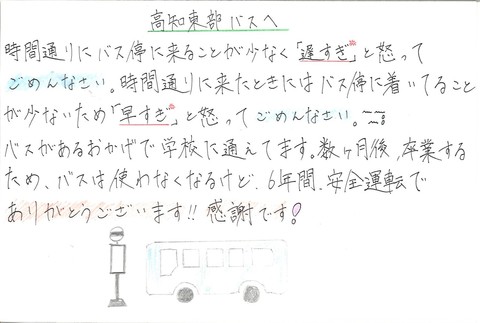 高知東部バスへ
時間通りにバス停に来ることが少なく「遅すぎ」と怒って
ごめんなさい。時間通りに来たときにはバス停に着いてること
が少ないため「早すぎ」と怒ってごめんなさい。
バスがあるおかげで学校に通えてます。数ヶ月後、卒業する
ため、バスは使わなくなるけど、6年間、安全運転で
ありがとうございます!! 感謝です!